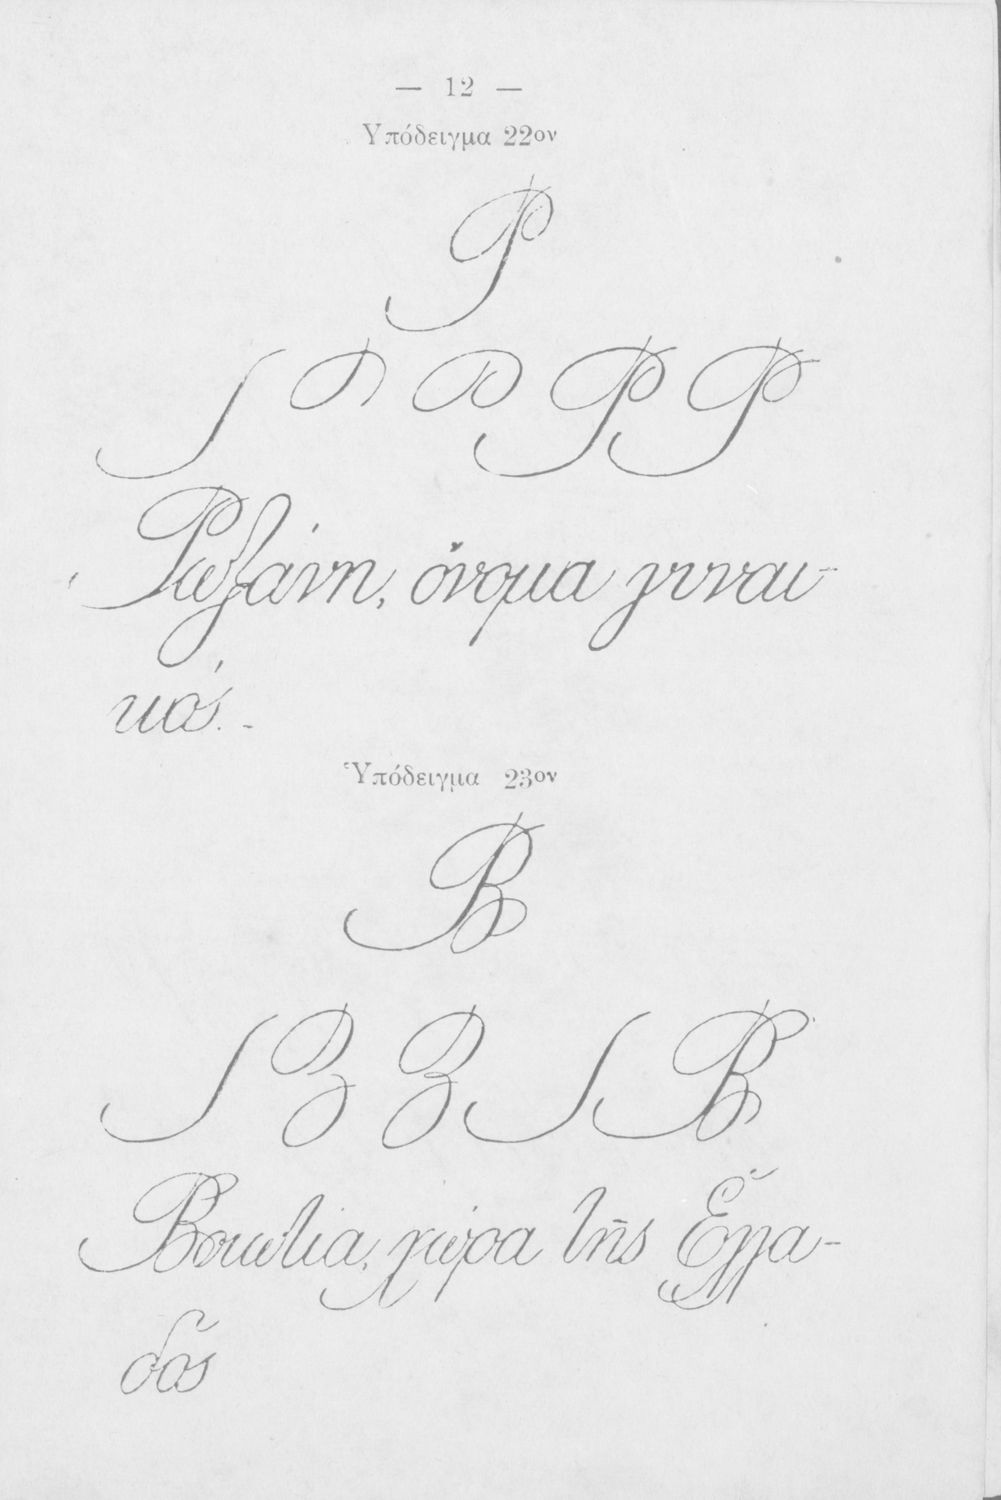 — 12 —
Υπόδειγμα 22ον
Ρ
Ρ Ρ
Ρωξάνη, όνομα γυναι-
κός.-
Ὑπόδειγμα 23ον
Β
Β
Βοιωτία, χώρα τῆς Ἑλλά-
δος